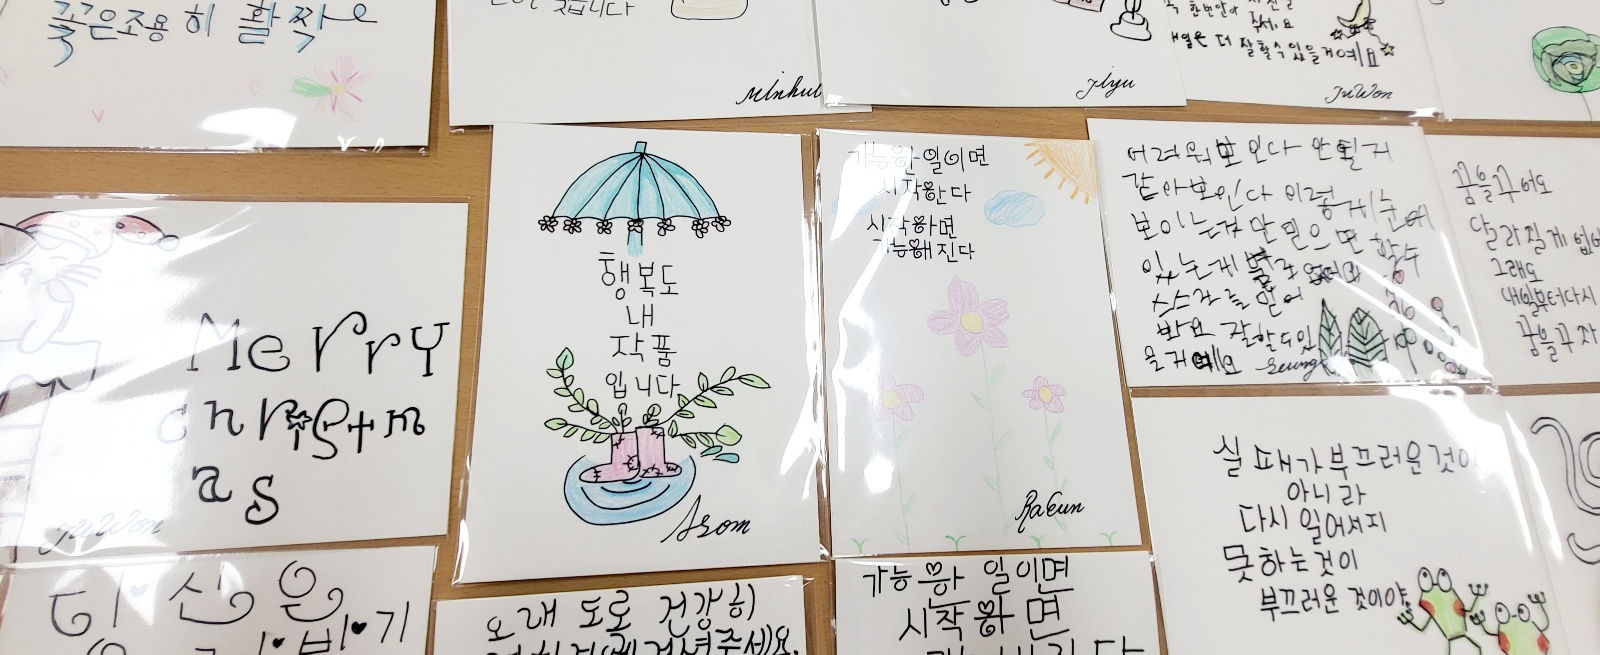 꽃은조용히 활짝
Minhui
Jiyu
한번만
주세요
내일은 더 잘할수있을거예요
JuWon
Merry
christm
as
JuWon
행복도
내
작품
입니다
Asom
가능한일이면
시작한다
시작하면
가능해진다
RaEun
어려워보인다 안될거
같아보인다 이렇게 눈에
보이는것만 믿으면 할수
있는게 별로 없어요
스스로를 믿어
봐요 잘할수있
을거예요
Seung
꿈을꾸어도
달라질게 없어
그래도
내일부터다시
꿈을꾸자
실패가부끄러운것이
아니라
다시 일어서지
못하는것이
부끄러운 것이야
당신은
오래 도록 건강히
주세요.
가능한 일이면
시작하면